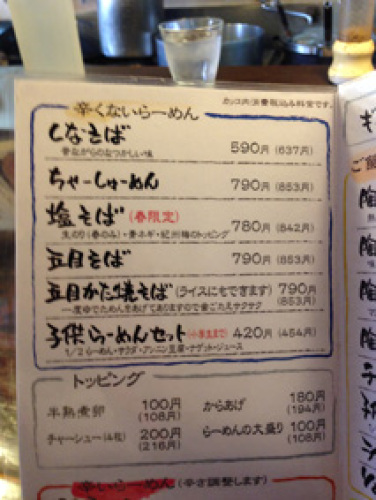 辛くないらーめん
カッコ内消費税込み料金です。
しなそば 590円(637円)
昔ながらのなつかしい味
ちゃーしゅーめん 790円(853円)
塩そば(春限定) 780円(842円)
生のり(春のみ)・青ネギ・紀州梅のトッピング
五目そば 790円(853円)
五目かた焼そば(ライスにもできます) 790円(853円)
一度ゆでためんをあげてありますので歯ごたえサクサク
子供らーめんセット 420円(454円)
1/2らーめん・サラダ・アンニン豆腐・ナゲット・ジュース
トッピング
半熟煮卵 100円(108円)
からあげ 180円(194円)
チャーシュー(4枚) 200円(216円)
らーめんの大盛り 100円(108円)
辛いらーめん(辛さ調整します)